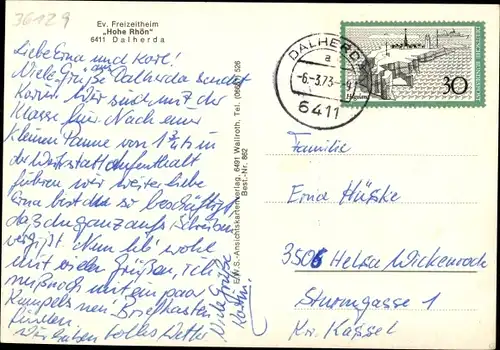 36129
Ev. Freizeitheim
„Hohe Rhön"
6411 Dalherda
Liebe Erna und Karl!
Viele Grüße aus Dalherda sendet
Katrin. Wir sind mit der
Klasse hier. Nach einer
kleinen Panne von 1 Std. in
der Werkstattaufenthalt
führen wir weiter. Liebe
Erna bist du so beschäftigt
daß du ganz aufs Schreiben
vergißt. Nun leb' wohl
mit vielen Grüßen, ich
muß noch mit ein paar
Kumpels nen Briefkasten
finden.
Wir haben tolles Wetter
Viele Grüße
Katrin
E.W.S.-Ansichtskartenverlag, 6491 Wallroth, Tel. 526
Best.-Nr. 862
DALHERDA
a
-6.-3.73-
6411
DEUTSCHE BUNDESPOST
30
Familie
Erna Hüfke
3505 Helsa Wickenrode
Sturmgasse 1
Kr. Kassel